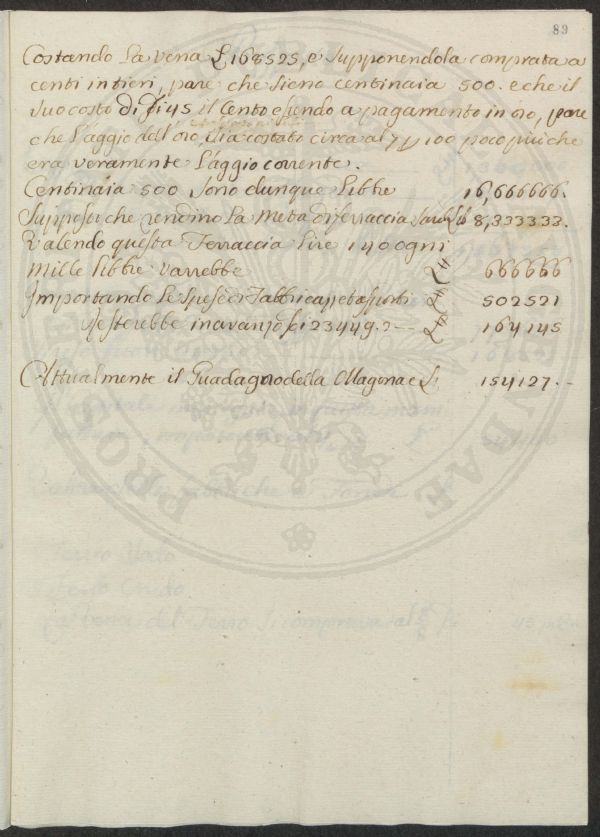 89
Costando La Vena £ 168525, e Supponendola comprata a
centi intieri, pare che sieno centinaia 500. e che il
suo costo di 45 il Cento essendo a pagamento in oro, pare
che l'aggio dell'oro, sia costato circa al 7 p 100 poco piu che
era veramente l'aggio corrente.
Centinaia 500 sono dunque Libbre 16,666666.
Supposto che rendino La Metà di ferraccia sarà Lib 8,333333.
Valendo questa Ferraccia Lire 1400 ogni
Mille Libbre varrebbe 666666
Importando Le Spese di Fabbica 502521
Resterebbe in avanzo 23449.2 — 164145
Attualmente il Guadagno della Magona e £ 154127. -
PROS UDAE